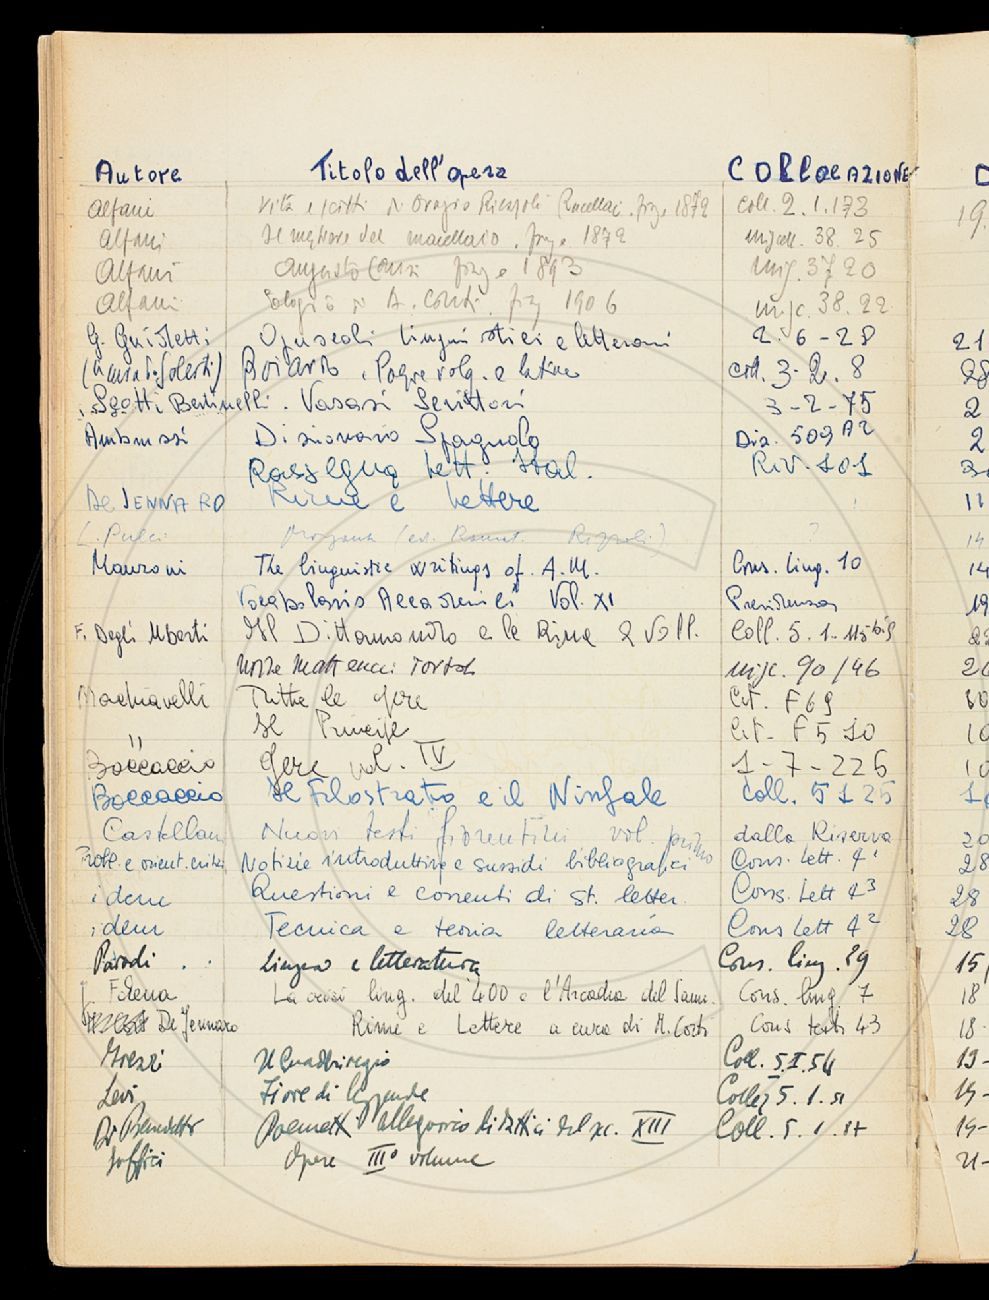 Autore Titolo dell'opera COLLOCAZIONE D
Alfani Vita e scritti di Orazio Ricasoli Rucellai. 1872 coll. 2.1.173 19.
Alfani Il mestiere del macellaio. 1872 38. 25
Alfani Augusto Conti 1893 misc. 37 20
Alfani A. Conti. 1906 misc. 38. 22.
G. Opuscoli linguistici e letterari 2. 6 - 28 21
(a cura di Solerti) Boiardo. Poesie volg. e latine coll. 3. 2. 8 28
Sgotti Bertinelli. Vasari Scrittori 3 - 2 - 75 2
Ambruzzi Dizionario Spagnolo Diz. 509 A2 2
Rassegna Lett. Ital. RIV. 101
De JENNARO Rime e Lettere 11
L. Pulci Morgante (ed. ) ? 14
Manzoni The linguistic writings of. A.M. Cons. ling. 10 14
Vocabolario Accademici Vol. XI Presidenza 19
F. Degli Uberti Il Dittamondo e le Rime 2 Voll. Coll. 5. 1. 115 bis
Nozze misc. 90/46
Machiavelli Tutte le opere Cit. F 69 30
" Il Principe Cit. F 5 10 10
Boccaccio Opere vol. IV 1 - 7 - 226 10
Boccaccio Il Filostrato e il Ninfale Coll. 5 1 25
Castellani Nuovi testi fiorentini vol. primo dalla Riserva 20
Probl. e orient. critici Notizie introduttive e sussidi bibliografici Cons. Lett. 4 1 28
idem Questioni e correnti di st. letter. Cons. Lett 4 3 28
idem Tecnica e teoria letteraria Cons Lett 4 2 28
Parodi . . Lingua e letteratura Cons. ling. 29 15
Folena La crisi ling. del 400 e l'Arcadia del Sann. Cons. ling. 7 18
De Jennaro Rime e Lettere a cura di M. Corti Cons testi 43 18
Frezzi Il Quadriregio Coll. 5.I.54 19-
Levi Fiore di leggende Collez 5. 1. 19-
Di Benedetto Poemetti allegorico didattici del sec. XIII Coll. 5. 1. 19-
Soffici Opere III° volume 21-